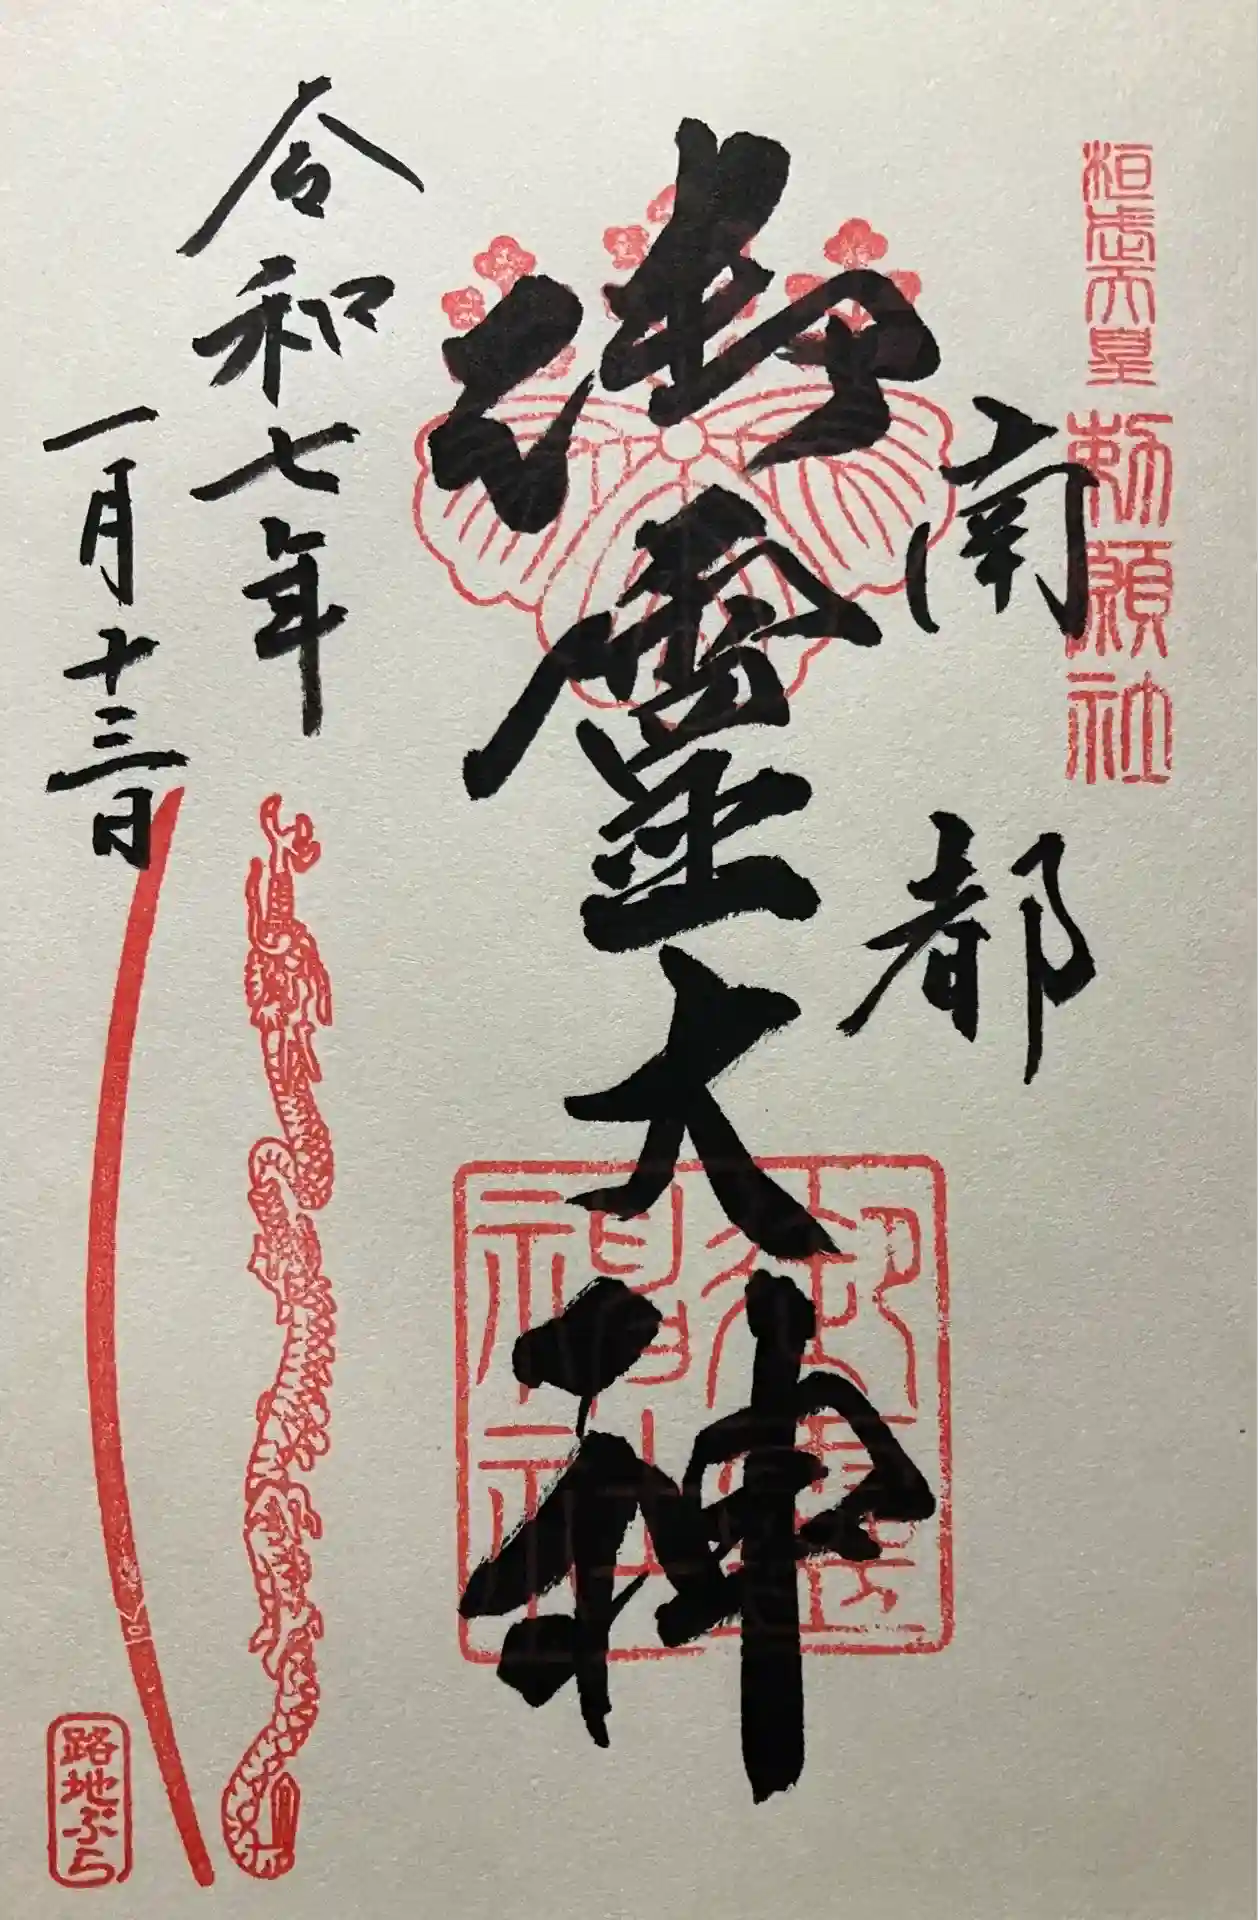 桓武天皇
勅願社
南都
御靈大神
御靈神社
令和七年
一月十三日
路地ぶら